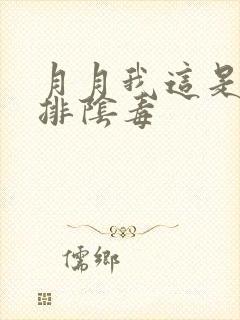 月月我這是
排陰毒
儒鄉